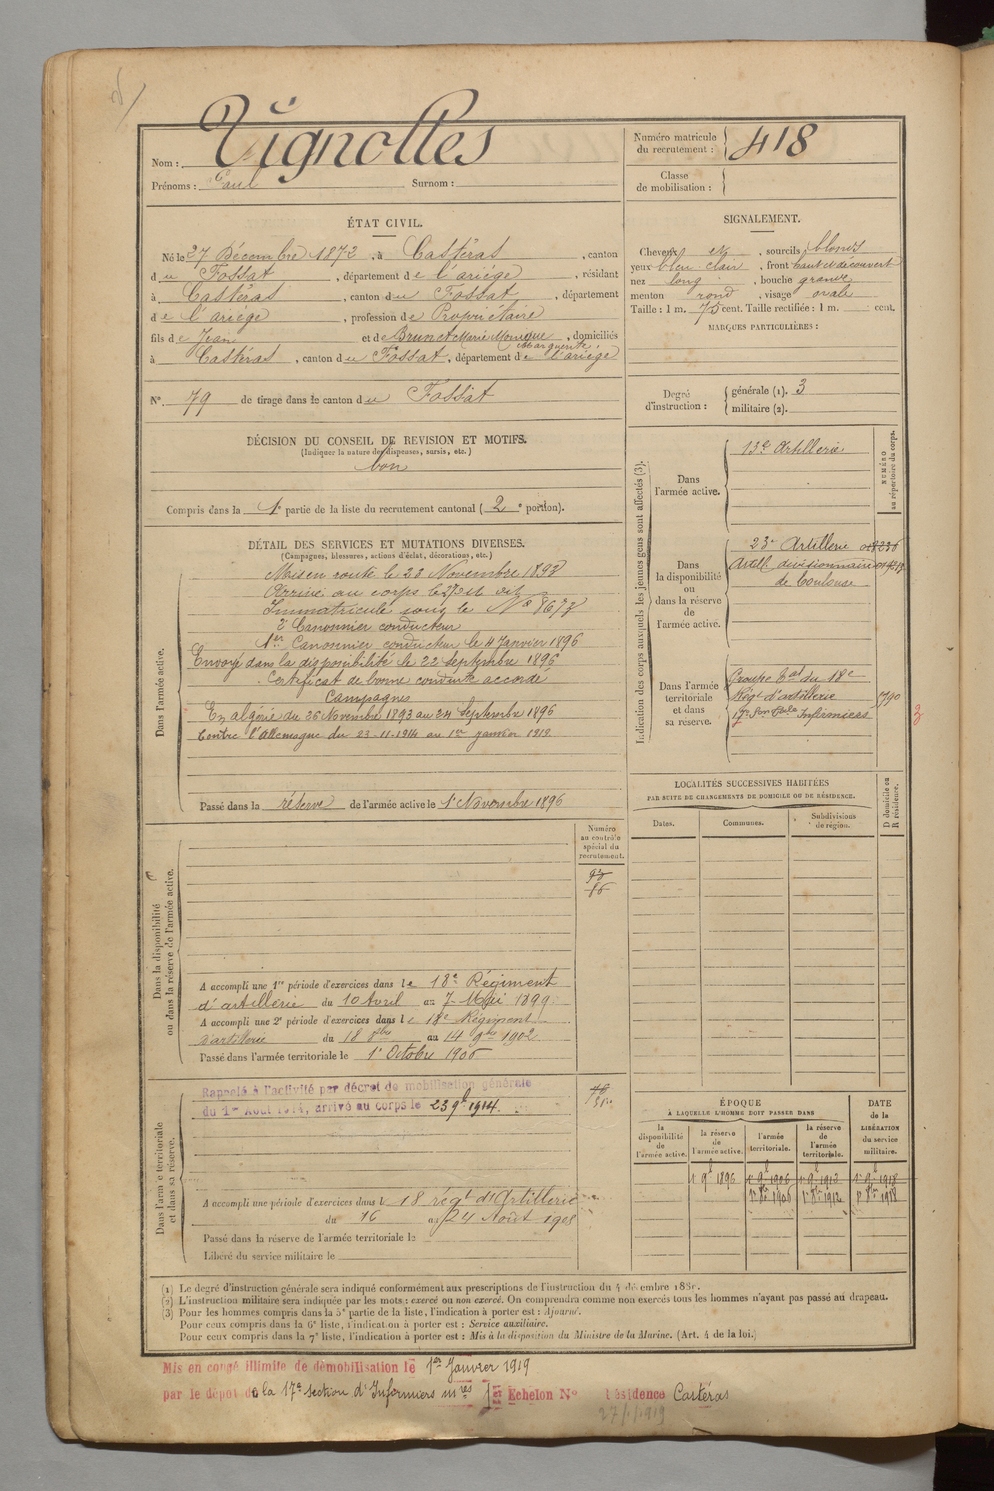 Nom : Vignolles
Prénoms : Paul Surnom :
Numéro matricule du recrutement : 418
Classe de mobilisation :
ÉTAT CIVIL.
Né le 27 Décembre 1872, à Castéras, canton
du Fossat, département de l'ariège, résidant
à Castéras, canton du Fossat, département
de l'ariège, profession de Propriétaire
fils de Jean et de Brun et Marie Monique Marguerite, domiciliés
à Castéras, canton du Fossat, département de l'ariège
N°. 79 de tirage dans le canton du Fossat
SIGNALEMENT.
Cheveux et, sourcils blonds
yeux bleu clair, front haut et découvert
nez long, bouche grande
menton rond, visage ovale
Taille : 1 m. 75 cent. Taille rectifiée : 1 m. cent.
MARQUES PARTICULIÈRES :
Degré d'instruction : générale (1). 3
militaire (2).
DÉCISION DU CONSEIL DE REVISION ET MOTIFS.
(Indiquer la nature des dispenses, sursis, etc.)
bon
Compris dans la 1e partie de la liste du recrutement cantonal (2e portion).
DÉTAIL DES SERVICES ET MUTATIONS DIVERSES.
(Campagnes, blessures, actions d'éclat, décorations, etc.)
Dans l'armée active.
Mis en route le 23 Novembre 1893
Arrivé au corps le dit
Immatriculé sous le No 8677
2e Canonnier conducteur
1er Canonnier conducteur le 4 Janvier 1896
Envoyé dans la disponibilité le 22 Septembre 1896
Certificat de bonne conduite accordé
Campagnes
En algérie du 26 Novembre 1893 au 24 Septembre 1896
Contre l'allemagne du 23-11-1914 au 1er janvier 1919
Passé dans la réserve de l'armée active le 1er Novembre 1896
Indication des corps auxquels les jeunes gens sont affectés (3).
NUMÉRO au répertoire du corps.
Dans l'armée active.
13e Artillerie
Dans la disponibilité ou dans la réserve de l'armée active.
23e Artillerie
Artill. divisionnaire
de Toulouse
Dans l'armée territoriale et dans sa réserve.
Groupe tal du 18e
Régt d'artillerie 1790
17e Son tale Infirmiers
LOCALITÉS SUCCESSIVES HABITÉES
PAR SUITE DE CHANGEMENTS DE DOMICILE OU DE RÉSIDENCE.
Dates. Communes. Subdivisions de région. D domicile ou R résidence.
Numéro au contrôle spécial du recrutement.
Dans la disponibilité ou dans la réserve de l'armée active.
A accompli une 1re période d'exercices dans le 18e Régiment
d'artillerie du 10 Avril au 7 Mai 1899
A accompli une 2e période d'exercices dans le 18e Régiment
d'artillerie du 18 8bre au 14 9bre 1902
Passé dans l'armée territoriale le 1er Octobre 1906
Dans l'armée territoriale et dans sa réserve.
Rappelé à l'activité par décret de mobilisation générale
du 1er Août 1914, arrivé au corps le 23 9b 1914.
A accompli une période d'exercices dans le 18 régt d'Artillerie
du 16 au 24 Août 1908
Passé dans la réserve de l'armée territoriale le
Libéré du service militaire le
ÉPOQUE
À LAQUELLE L'HOMME DOIT PASSER DANS
la disponibilité de l'armée active.
la réserve de l'armée active.
l'armée territoriale.
la réserve de l'armée territoriale.
DATE de la LIBÉRATION du service militaire.
1er 9b 1896 1er 9b 1906 1er 9b 1912 1er 9b 1918
1er 8bre 1906 1er 8bre 1912 1er 8bre 1918
(1) Le degré d'instruction générale sera indiqué conformément aux prescriptions de l'instruction du 4 décembre 1889.
(2) L'instruction militaire sera indiquée par les mots : exercé ou non exercé. On comprendra comme non exercés tous les hommes n'ayant pas passé au drapeau.
(3) Pour les hommes compris dans la 5e partie de la liste, l'indication à porter est : Ajourné.
Pour ceux compris dans la 6e liste, l'indication à porter est : Service auxiliaire.
Pour ceux compris dans la 7e liste, l'indication à porter est : Mis à la disposition du Ministre de la Marine. (Art. 4 de la loi.)
Mis en congé illimité de démobilisation le 1er Janvier 1919
par le dépôt de la 17e section d'Infirmiers mres Echelon No Résidence Castéras
27/1/1919